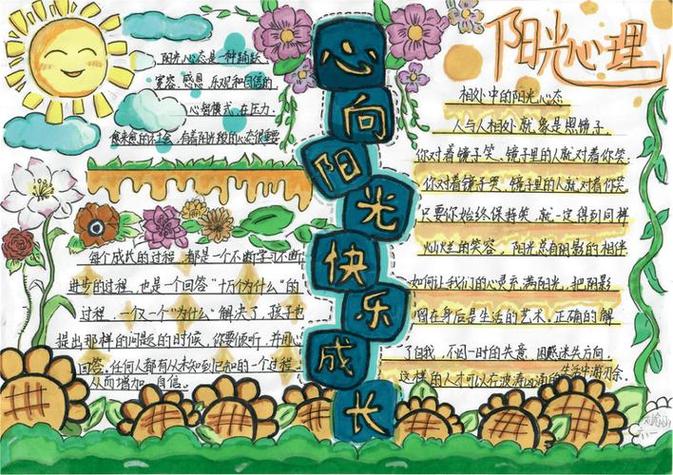 阳光心态是一种踊跃
宽容、感恩、乐观和自信的
心智模式在压力
愈来愈的社会,有着阳光般的心态很重要
每个成长的过程,都是一个不断学习不断
进步的过程,也是一个回答“十万个为什么”的
过程,一仅一个“为什么”解决了,孩子也
提出那样的问题的时候,你要倾听,并用心
回答.任何人都有从未知到已知的一个过程
从而增加 自信。
心向阳光快乐成长
阳光心理
相处中的阳光心态
人与人相处就象是照镜子
你对着镜子笑、镜子里的人就对着你笑
你对着镜子哭、镜子里的人就对着你哭
只要你始终保持笑,就一定得到同样
灿烂的笑容,阳光总有阴影的相伴
如何让我们的心灵充满阳光,把阴影
留在身后是生活的艺术.正确的解
了自我,不因一时的失意、困惑迷失方向.
这样的人才可以在波涛汹涌的生活中游刃余.